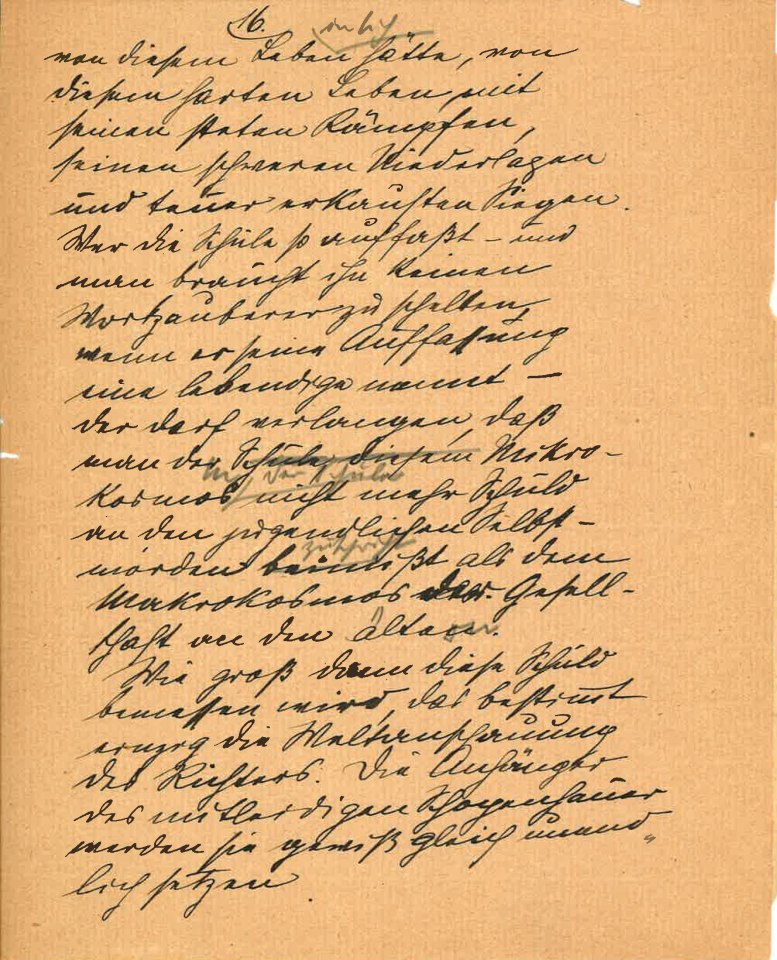 16.
in sich
von diesem Leben hätte, von
diesem harten Leben, mit
seinen steten Kämpfen,
seinen schweren Niederlagen
und teuer erkauften Siegen.
Wer die Schule so auffaßt – und
man braucht ihn keinen
Wortzauberer zu schelten,
wenn er seine Auffassung
eine lebendige nennt –
der darf verlangen, daß
man der Schule, diesem Mikro-
der Schule
kosmos, nicht mehr Schuld
an den jugendlichen Selbst-
zuschreibt
morden beimißt als dem
Makrokosmos der Gesell-
schaft an den älteren.
Wie groß dann diese Schuld
bemessen wird, das bestimmt
einzig die Weltanschauung
des Richters. Die Anhänger
des mitleidigen Schopenhauer
werden sie gewiß gleich unend-
lich setzen.